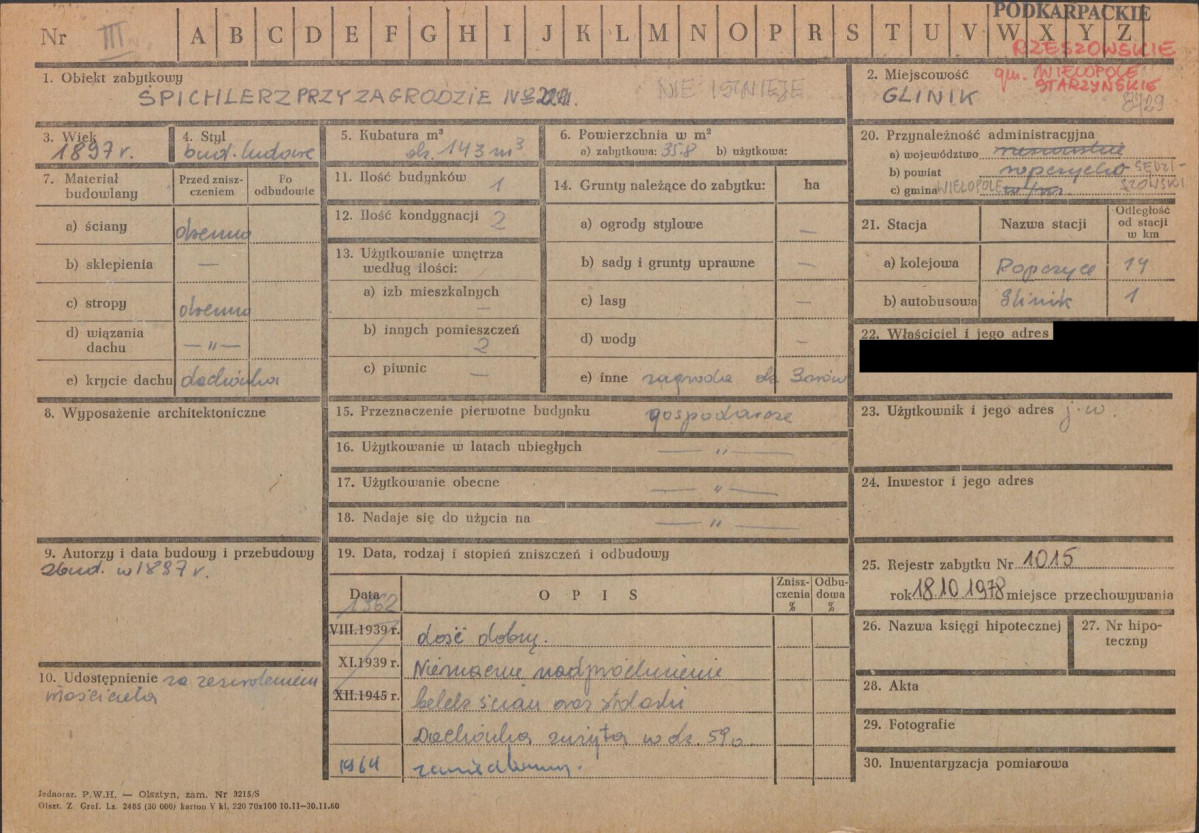 Nr III A B C D E F G H I J K L M N O P R S T U V W X Y Z
PODKARPACKIE
RZESZOWSKIE
1. Obiekt zabytkowy
SPICHLERZ PRZY ZAGRODZIE NR
NIE ISTNIEJE
2. Miejscowość
gm. WIELOPOLE
STARZYŃSKIE
GLINIK
8729
3. Wiek
1897 r.
4. Styl
bud. ludowe
5. Kubatura m³
ok. 143 m³
6. Powierzchnia w m²
a) zabytkowa: 35.8 b) użytkowa:
7. Materiał budowlany
Przed zniszczeniem
Po odbudowie
a) ściany drewno
b) sklepienia —
c) stropy drewno
d) wiązania dachu — „ —
e) krycie dachu dachówka
8. Wyposażenie architektoniczne
9. Autorzy i data budowy i przebudowy
zbud. w 1897 r.
10. Udostępnienie za zezwoleniem
właściciela
11. Ilość budynków 1
12. Ilość kondygnacji 2
13. Użytkowanie wnętrza
według ilości:
a) izb mieszkalnych —
b) innych pomieszczeń 2
c) piwnic —
14. Grunty należące do zabytku: ha
a) ogrody stylowe —
b) sady i grunty uprawne —
c) lasy —
d) wody —
e) inne zagroda ok
15. Przeznaczenie pierwotne budynku gospodarcze
16. Użytkowanie w latach ubiegłych — „ —
17. Użytkowanie obecne — „ —
18. Nadaje się do użycia na — „ —
19. Data, rodzaj i stopień zniszczeń i odbudowy
Data OPIS Zniszczenia % Odbudowa %
1962
VIII.1939 r. dość dobry.
XI.1939 r. Nieznaczne nadpróchnienie
XII.1945 r. belek ścian oraz
Dachówka zużyta w ok. 5%.
1964
20. Przynależność administracyjna
a) województwo rzeszowskie
b) powiat ropczycko SĘDZI-
SZOWSKI
c) gmina WIELOPOLE
21. Stacja Nazwa stacji Odległość od stacji w km
a) kolejowa Ropczyce 14
b) autobusowa Glinik 1
22. Właściciel i jego adres
23. Użytkownik i jego adres j.w.
24. Inwestor i jego adres
25. Rejestr zabytku Nr 1015
rok 18.10.1978 miejsce przechowywania
26. Nazwa księgi hipotecznej
27. Nr hipoteczny
28. Akta
29. Fotografie
30. Inwentaryzacja pomiarowa
Jednoraz. P.W.H. — Olsztyn, zam. Nr 3215/S
Olszt. Z. Graf. Lz. 2405 (30 000) karton V kl. 220 70x100 10.11—30.11.60